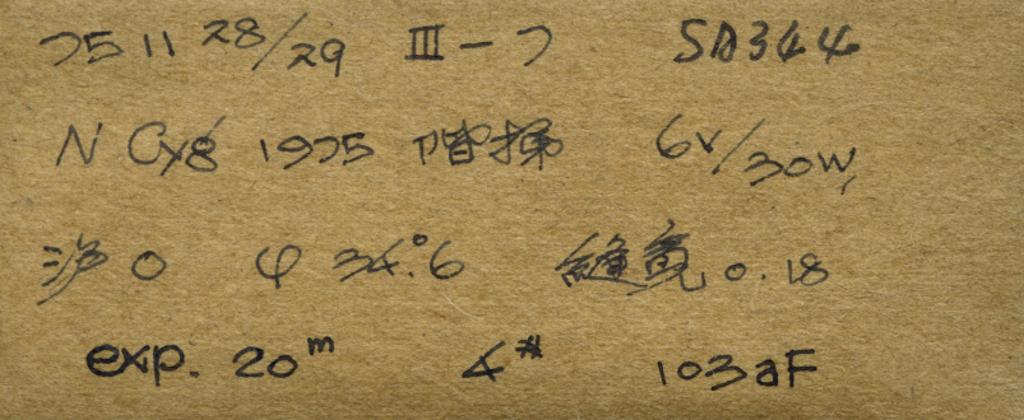 75 11 28/29 III-7 SA344
N Cyg 1975 階梯 6V/30W,
沪 0 φ 34°.6 縫寬 0.18
exp. 20m 4# 103aF